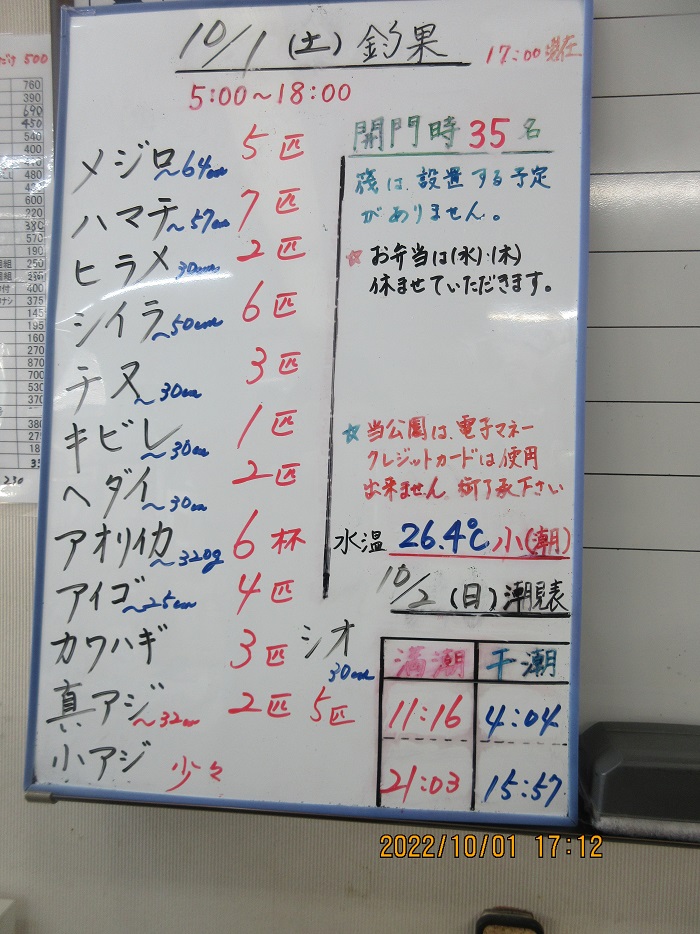 10/1(土)釣果
17:00現在
5:00~18:00
メジロ~64cm 5匹
ハマチ~57cm 7匹
ヒラメ30cm 2匹
シイラ~50cm 6匹
チヌ~30cm 3匹
キビレ~30cm 1匹
ヘダイ~30cm 2匹
アオリイカ~320g 6杯
アイゴ~25cm 4匹
カワハギ 3匹
真アジ~32cm 2匹
小アジ 少々
シオ
30cm
5匹
開門時35名
筏は、設置する予定
がありません。
☆お弁当は(水)・(木)
休ませていただきます。
☆当公園は、電子マネー
クレジットカードは使用
出来ません。御了承下さい
水温 26.4℃ 小(潮)
10/2(日)潮見表
満潮 干潮
11:16 4:04
21:03 15:57
2022/10/01 17:12
500
760
390
690
450
540